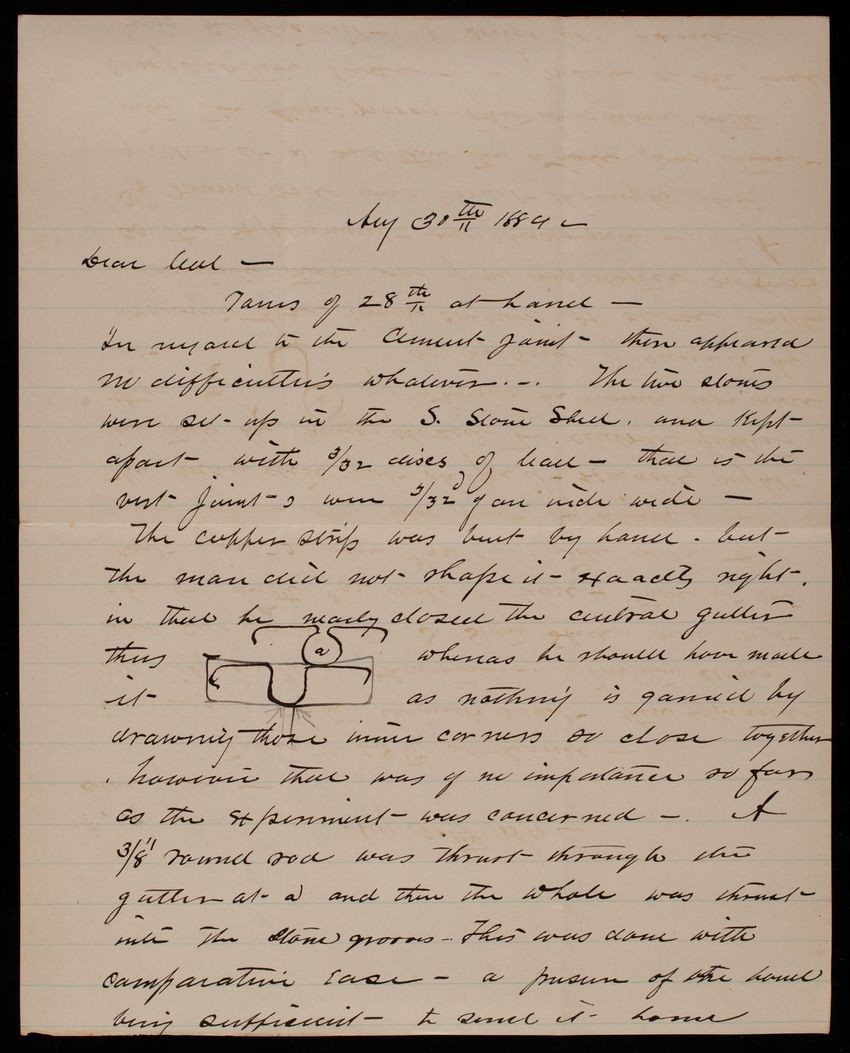 Aug 30th 1884
Dear Col —
Yours of 28th at hand —
In regard to the Cement joint - there appeared
no difficulties whatever. -. The two stones
were set up in the S. Stone Shed. and Kept
apart with 3/32 discs of lead - that is the
vert joints were 3/32 of an inch wide —
The copper strip was bent by hand - but
the man did not shape it exactly right.
in that he nearly closed the central gutter
thus whereas he should have made
a
it as nothing is gained by
drawing those inner corners so close together
. however that was of no importance so far
as the experiment was concerned -. A
3/8" round rod was thrust through the
gutter at a and then the whole was thrust
into the stone grooves - This was done with
comparative ease - a pressure of the hand
being sufficient to send it home